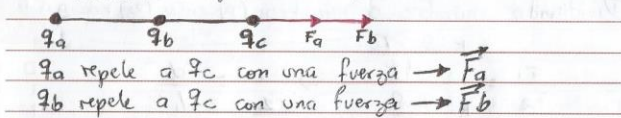 qa qb qc Fa Fb
qa repele a qc con una fuerza → Fa
qb repele a qc con una fuerza → Fb